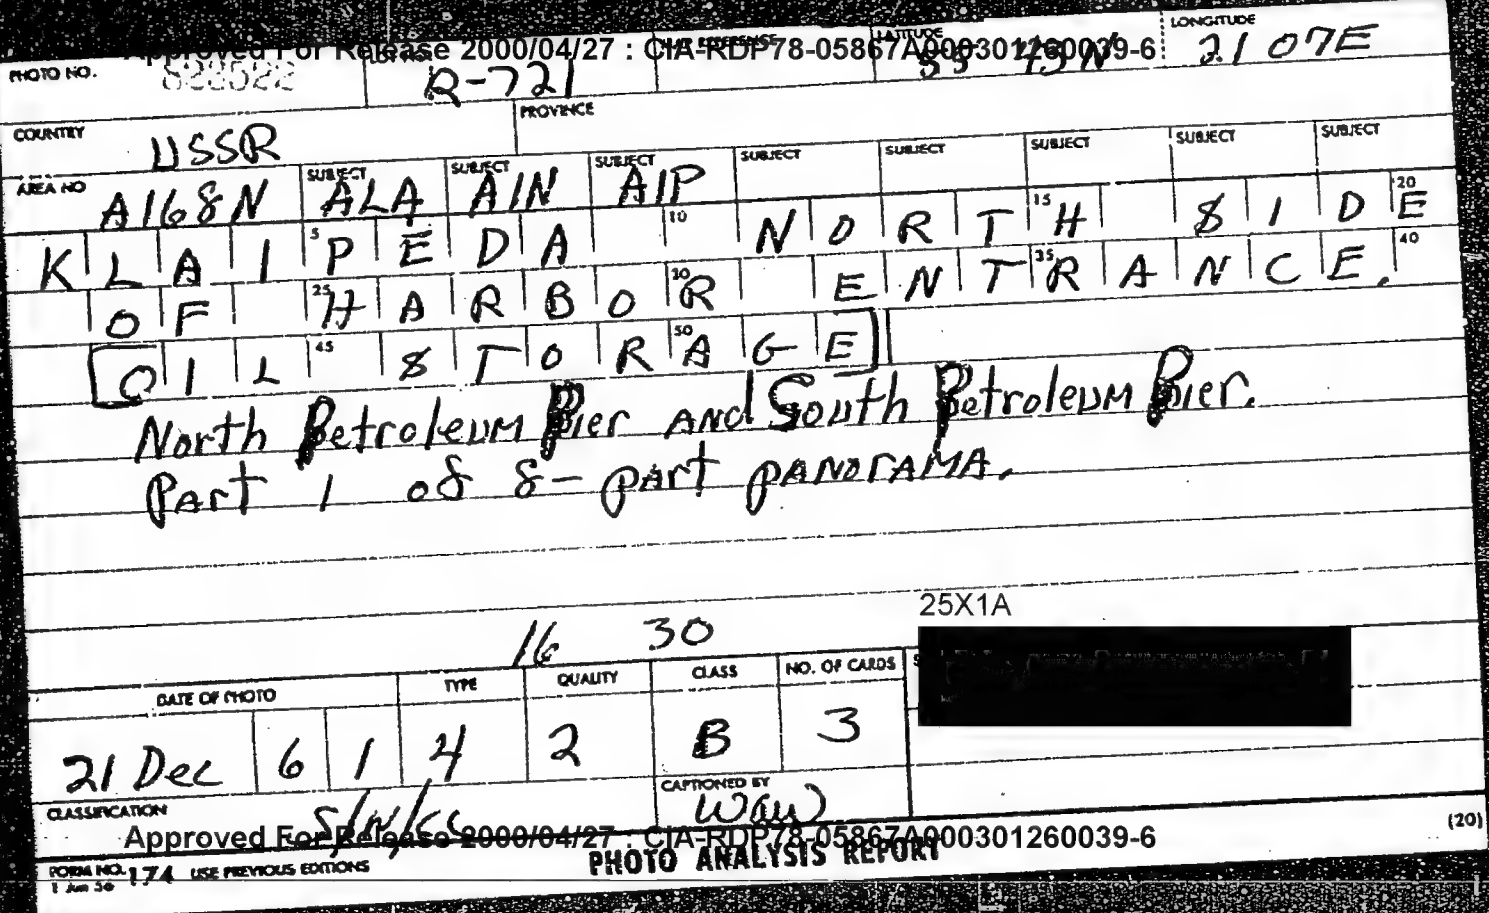 Approved For Release 2000/04/27 : CIA-RDP78-05867A000301260039-6
PHOTO NO. LATITUDE LONGITUDE
R-721 55 43 N 21 07E
COUNTRY USSR PROVINCE
AREA NO A168N SUBJECT ALA SUBJECT AIN SUBJECT AIP SUBJECT SUBJECT SUBJECT SUBJECT SUBJECT
KLAIPEDA NORTH SIDE
OF HARBOR ENTRANCE.
OIL STORAGE
North Petroleum Pier and South Petroleum Pier.
Part 1 of 8-part panorama.
25X1A
16 30
DATE OF PHOTO TYPE QUALITY CLASS NO. OF CARDS
21 Dec 6 1 4 2 B 3
CLASSIFICATION CAPTIONED BY
Approved For Release 2000/04/27 : CIA-RDP78-05867A000301260039-6
(20)
FORM NO. 174 USE PREVIOUS EDITIONS PHOTO ANALYSIS REPORT
1 Jun 56